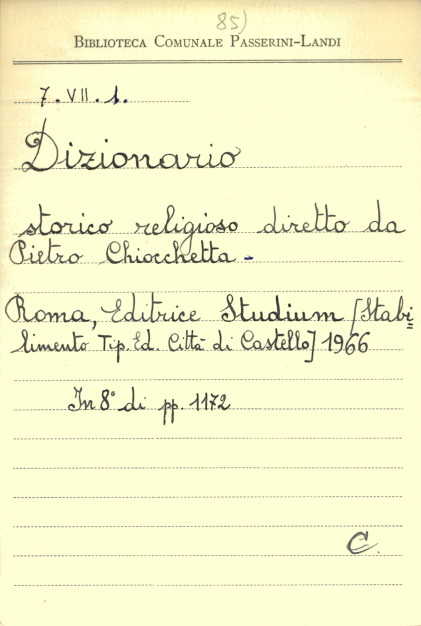 85)
BIBLIOTECA COMUNALE PASSERINI-LANDI
7.VII.1.
Dizionario
storico religioso diretto da
Pietro Chiocchetta -
Roma, Editrice Studium [Stabi=
limento Tip. Ed. Città di Castello] 1966
In 8° di pp. 1172
C.